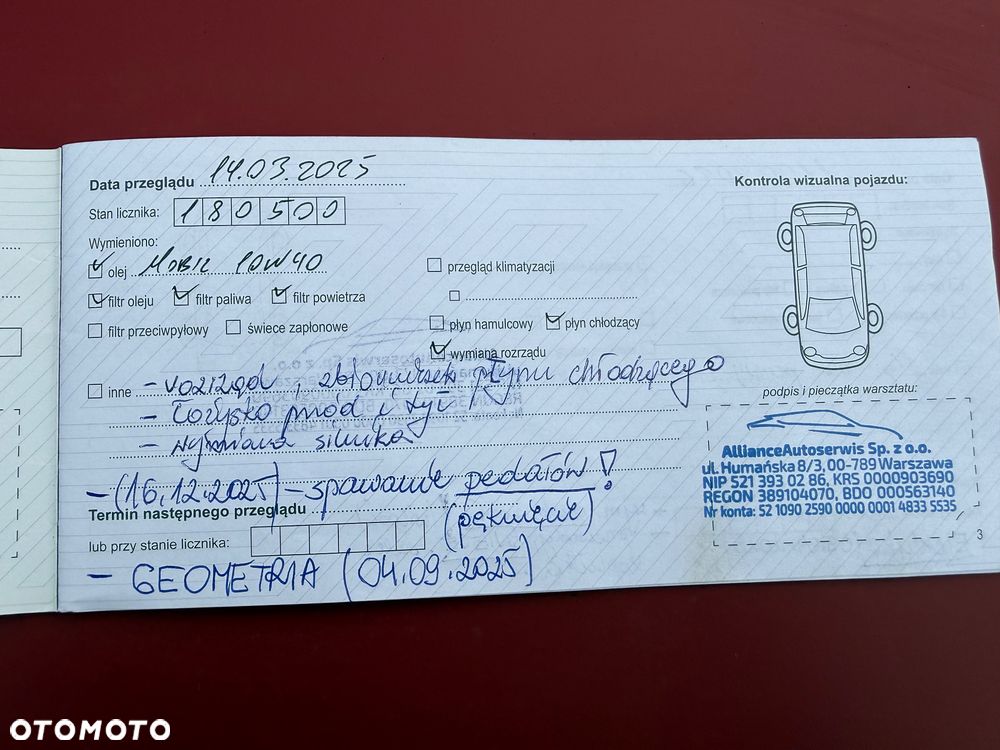 Data przeglądu 14.03.2025
Stan licznika: 180500
Wymieniono:
olej Mobil 10W40
filtr oleju filtr paliwa filtr powietrza
filtr przeciwpyłowy świece zapłonowe
przegląd klimatyzacji
płyn hamulcowy płyn chłodzący
wymiana rozrządu
inne - rozrząd, zbiorniczek płynu chłodzącego
- łożysko przód i tył
- wymiana silnika
- (16.12.2025) - spawanie pedałów!
(pęknięcie)
Termin następnego przeglądu
lub przy stanie licznika:
- GEOMETRIA (04.09.2025)
Kontrola wizualna pojazdu:
podpis i pieczątka warsztatu:
AllianceAutoserwis Sp. z o.o.
ul. Humańska 8/3, 00-789 Warszawa
NIP 521 393 02 86, KRS 0000903690
REGON 389104070, BDO 000563140
Nr konta: 52 1090 2590 0000 0001 4833 5535
3
OTOMOTO